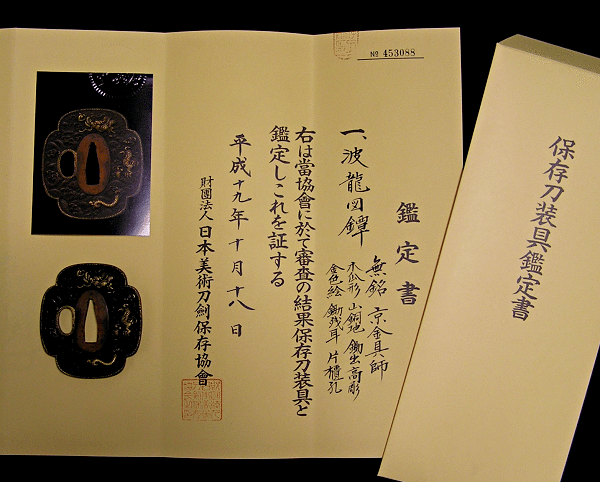 № 453088
鑑定書
一、波龍図鐔
無銘 京金具師
木瓜形 山銅地 鋤出高彫
金色絵 鋤残耳 片櫃孔
右は當協會に於て審査の結果保存刀装具と
鑑定しこれを証する
平成十九年十月十八日
財團法人 日本美術刀劍保存協會
保存刀装具鑑定書